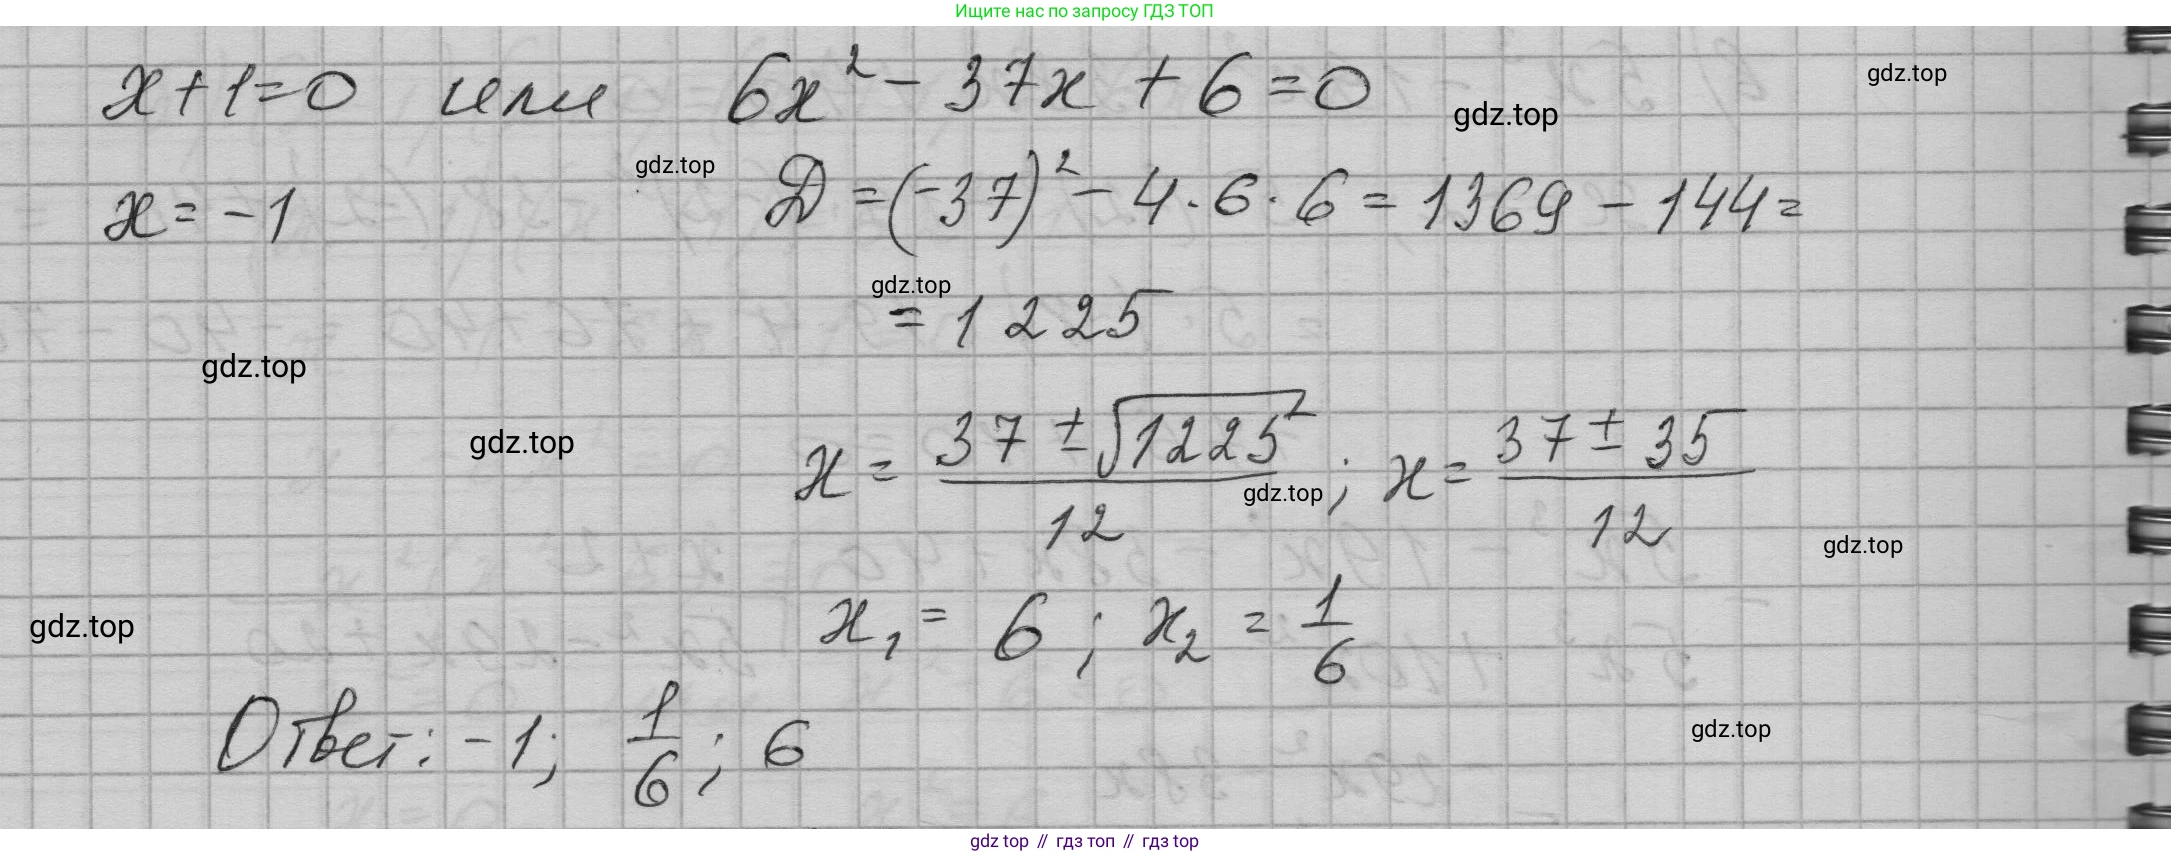 Ищите нас по запросу ГДЗ ТОП
x + 1 = 0 или 6x² - 37x + 6 = 0
gdz.top
gdz.top
gdz.top
x = -1 D = (-37)² - 4 · 6 · 6 = 1369 - 144 =
gdz.top
= 1225
gdz.top
gdz.top
x = (37 ± √1225)/12 ; x = (37 ± 35)/12
gdz.top
gdz.top
x₁ = 6 ; x₂ = 1/6
gdz.top
Ответ: -1; 1/6; 6
gdz.top
gdz top // гдз топ // гдз top